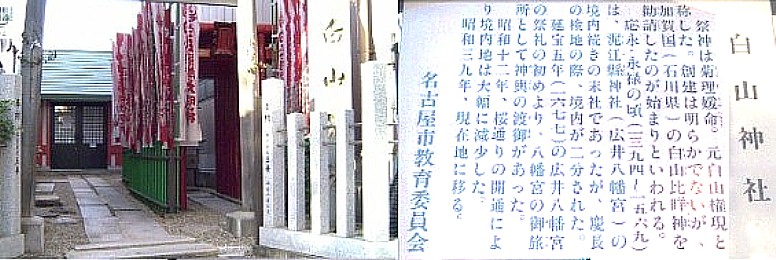 白山
白山神社
祭神は菊理媛命。元白山権現と
称した。創建は明らかでないが、
加賀国(石川県)の白山比咩神を
勧請したのが始まりといわれる。
応永・永禄の頃(一三九四〜一五六九)
は、泥江縣神社(広井八幡宮)の
境内続きの末社であったが、慶長
の検地の際、境内が二分された。
延宝五年(一六七七)の広井八幡宮
の祭礼の初めより、八幡宮の御旅
所として神輿の渡御があった。
昭和十二年、桜通りの開通によ
り境内地は大幅に減少した。
昭和三九年、現在地に移る。
名古屋市教育委員会